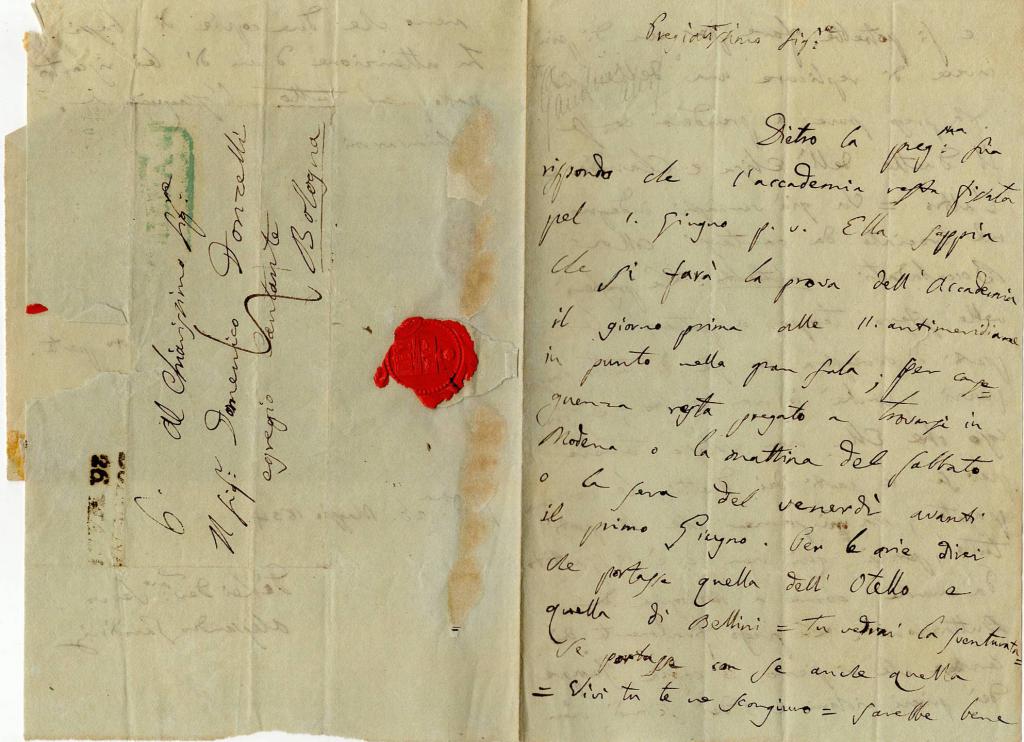 Al Chiarissimo Sig:re
Il Sig:r Domenico Donzelli
egregio Cantante
Bologna
6
26
Pregiatissimo Sig:e
Dietro la preg:ma sua
rispondo che l'accademia resta fissata
pel 1. Giugno p. v. Ella sappia
che si farà la prova dell'Accademia
il giorno prima alle 11. antimeridiane
in punto nella gran sala; per conse=
guenza resta pregato a trovarsi in
Modena o la mattina del sabbato
o la sera del venerdì avanti
il primo Giugno. Per le arie direi
che portasse quella dell'Otello e
quella di Bellini = tu vedrai la sventurata=
se portasse con se anche quella
= Vivi tu te ne scongiuro = sarebbe bene